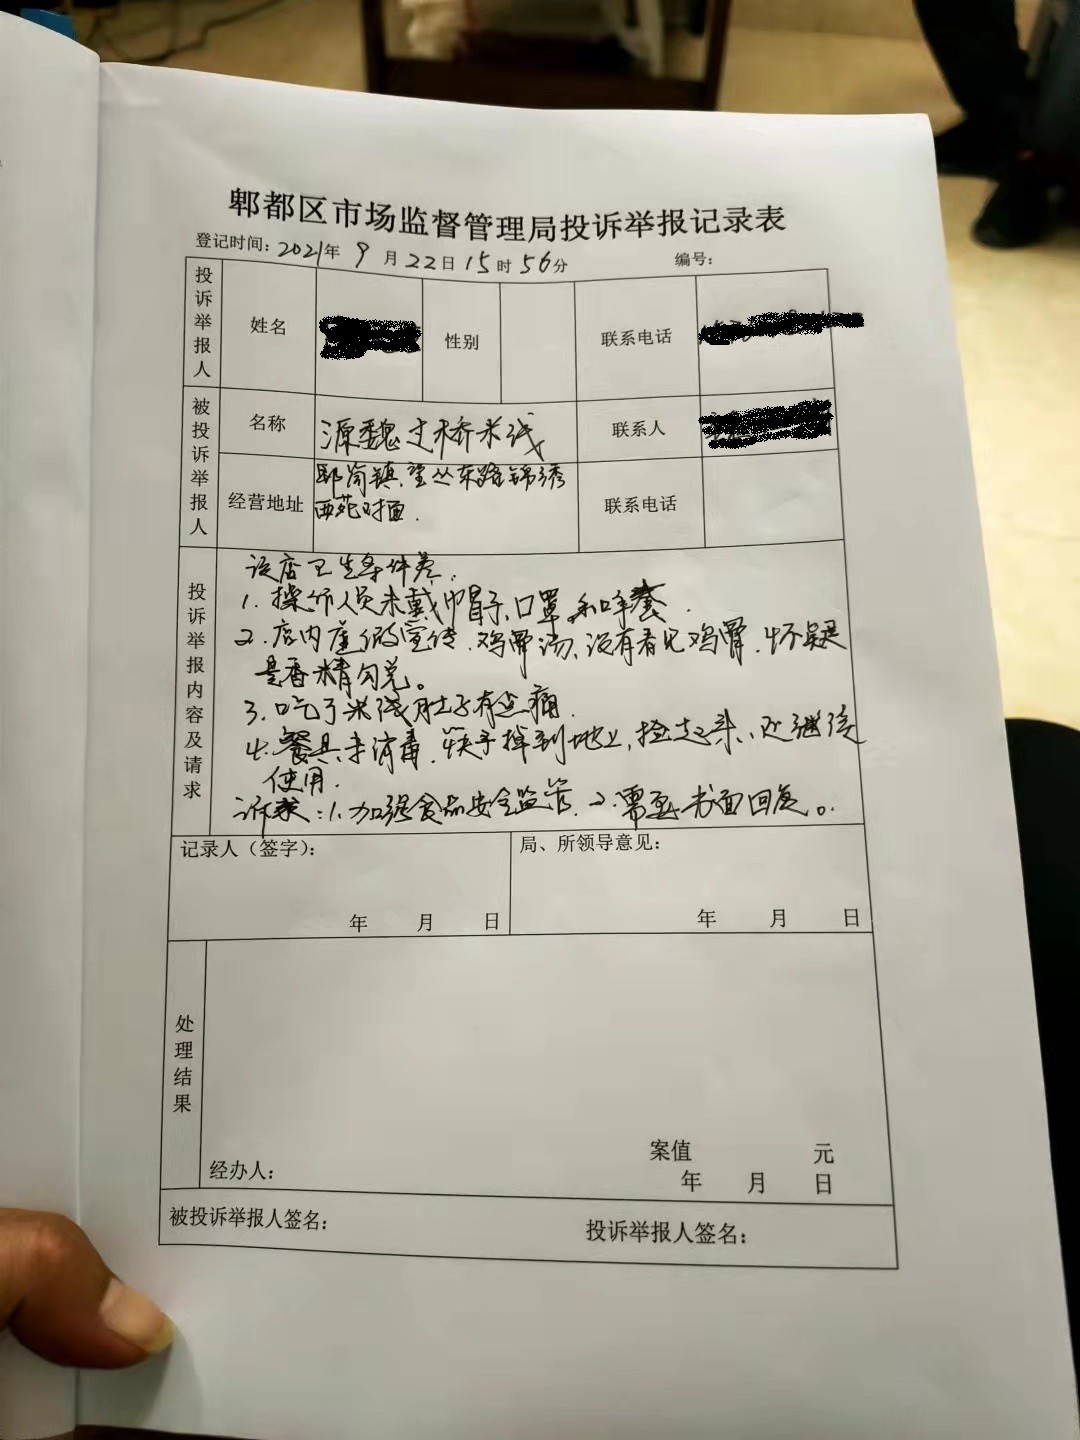 郫都区市场监督管理局投诉举报记录表
登记时间：2021年 9 月 22日 15 时 56分 编号：
投诉举报人 姓名 性别 联系电话
被投诉举报人 名称 源魏过桥米线 联系人
经营地址 郫筒镇、望丛东路锦绣
西苑对面. 联系电话
投诉举报内容及请求
该店卫生条件差.
1. 操作人员未戴帽子、口罩和手套.
2. 店内虚假宣传. 鸡骨汤、没有看见鸡骨. 怀疑
是香精勾兑。
3. 吃了米线肚子有点痛
4. 餐具未消毒. 筷子掉到地上, 捡起来、还继续
使用.
诉求：1. 加强食品安全监管. 2. 需要书面回复。
记录人（签字）： 局、所领导意见：
年 月 日 年 月 日
处理结果
案值 元
经办人： 年 月 日
被投诉举报人签名： 投诉举报人签名：